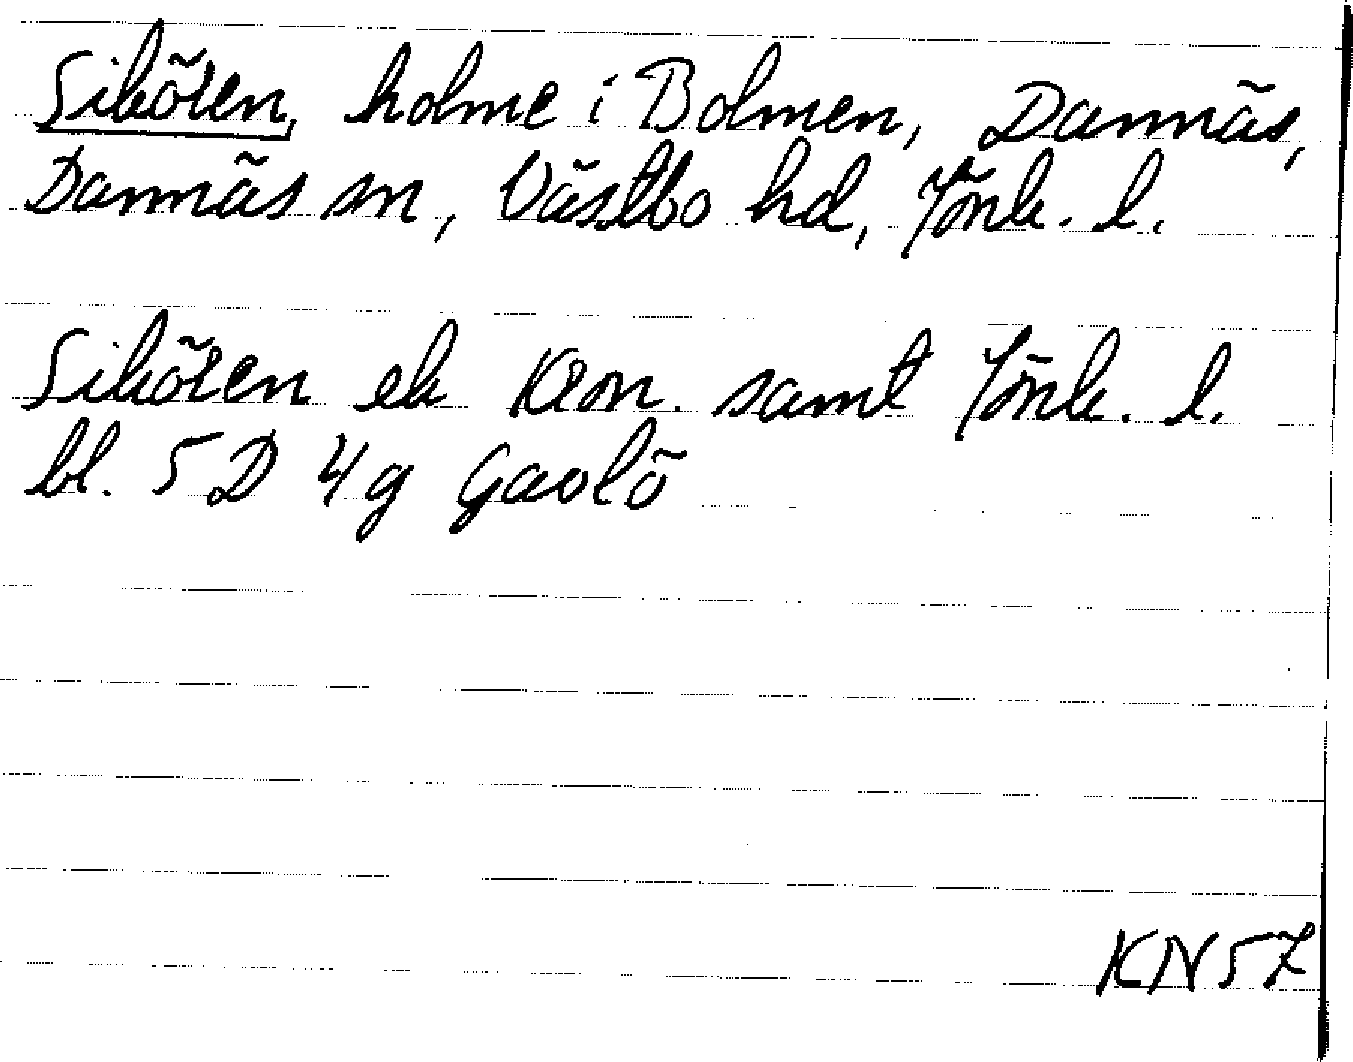 Sikören, holme i Bolmen, Dannäs,
Dannäs sn, Västbo hd, Jönk. l.
Sikören ek Kron. samt Jönk. l.
bl. 5D 4g Gaolö
KN57